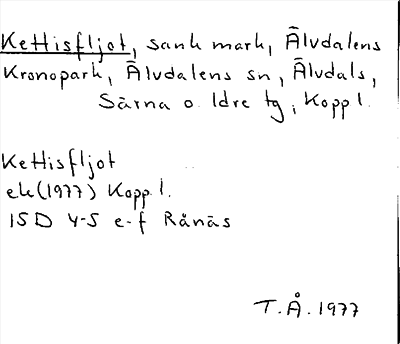 Kettisfljot, sank mark, Älvdalens
Kronopark, Älvdalens sn, Älvdals,
Särna o. Idre tg, Koppl.
Kettisfljot
ek (1977) Koppl.
15D 4-5 e-f Rånäs
T.Å. 1977